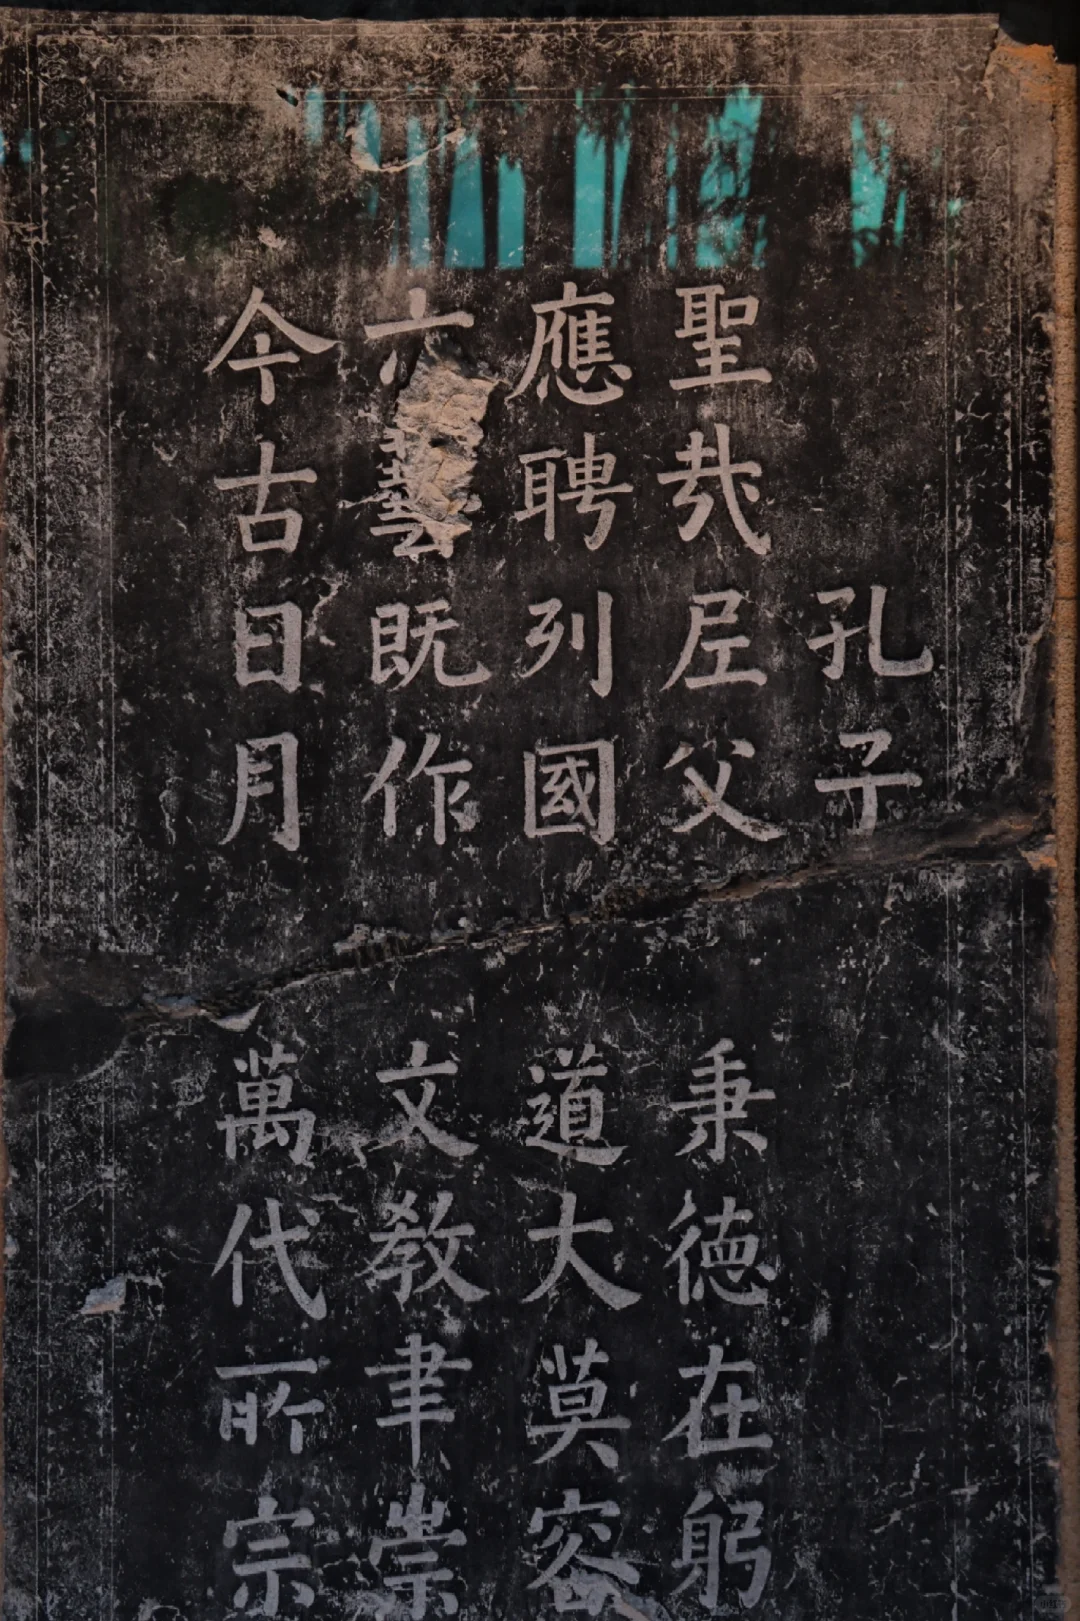 孔子
聖哉尼父秉德在躬
應聘列國道大莫容
六藝既作文教聿崇
今古日月萬代所宗